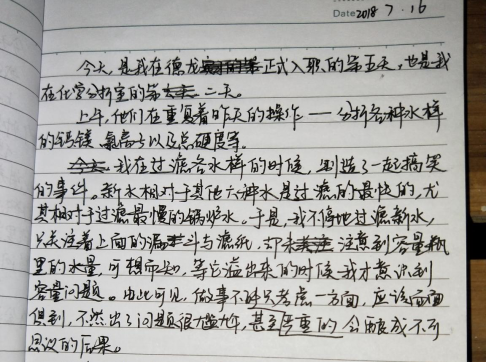 Date 2018 7. 16
今天,是我在德龙正式入职的第五天,也是我
在化学分析室的第二天。
上午,他们在重复着昨天的操作——分析各种水样
的钙镁、氯离子以及总硬度等。
我在过滤各水样的时候,制造了一起搞笑
的事件。新水相对于其他六种水是过滤的最快的,尤
其相对于过滤最慢的锅炉水。于是,我不停地过滤新水,
只关注着上面的漏斗与滤纸,却未注意到容量瓶
里的水量,可想而知,等它溢出来的时候我才意识到
容量问题。由此可见,做事不能只考虑一方面,应该面面
俱到,不然出了问题很尴尬,甚至严重的会酿成不可
思议的后果。